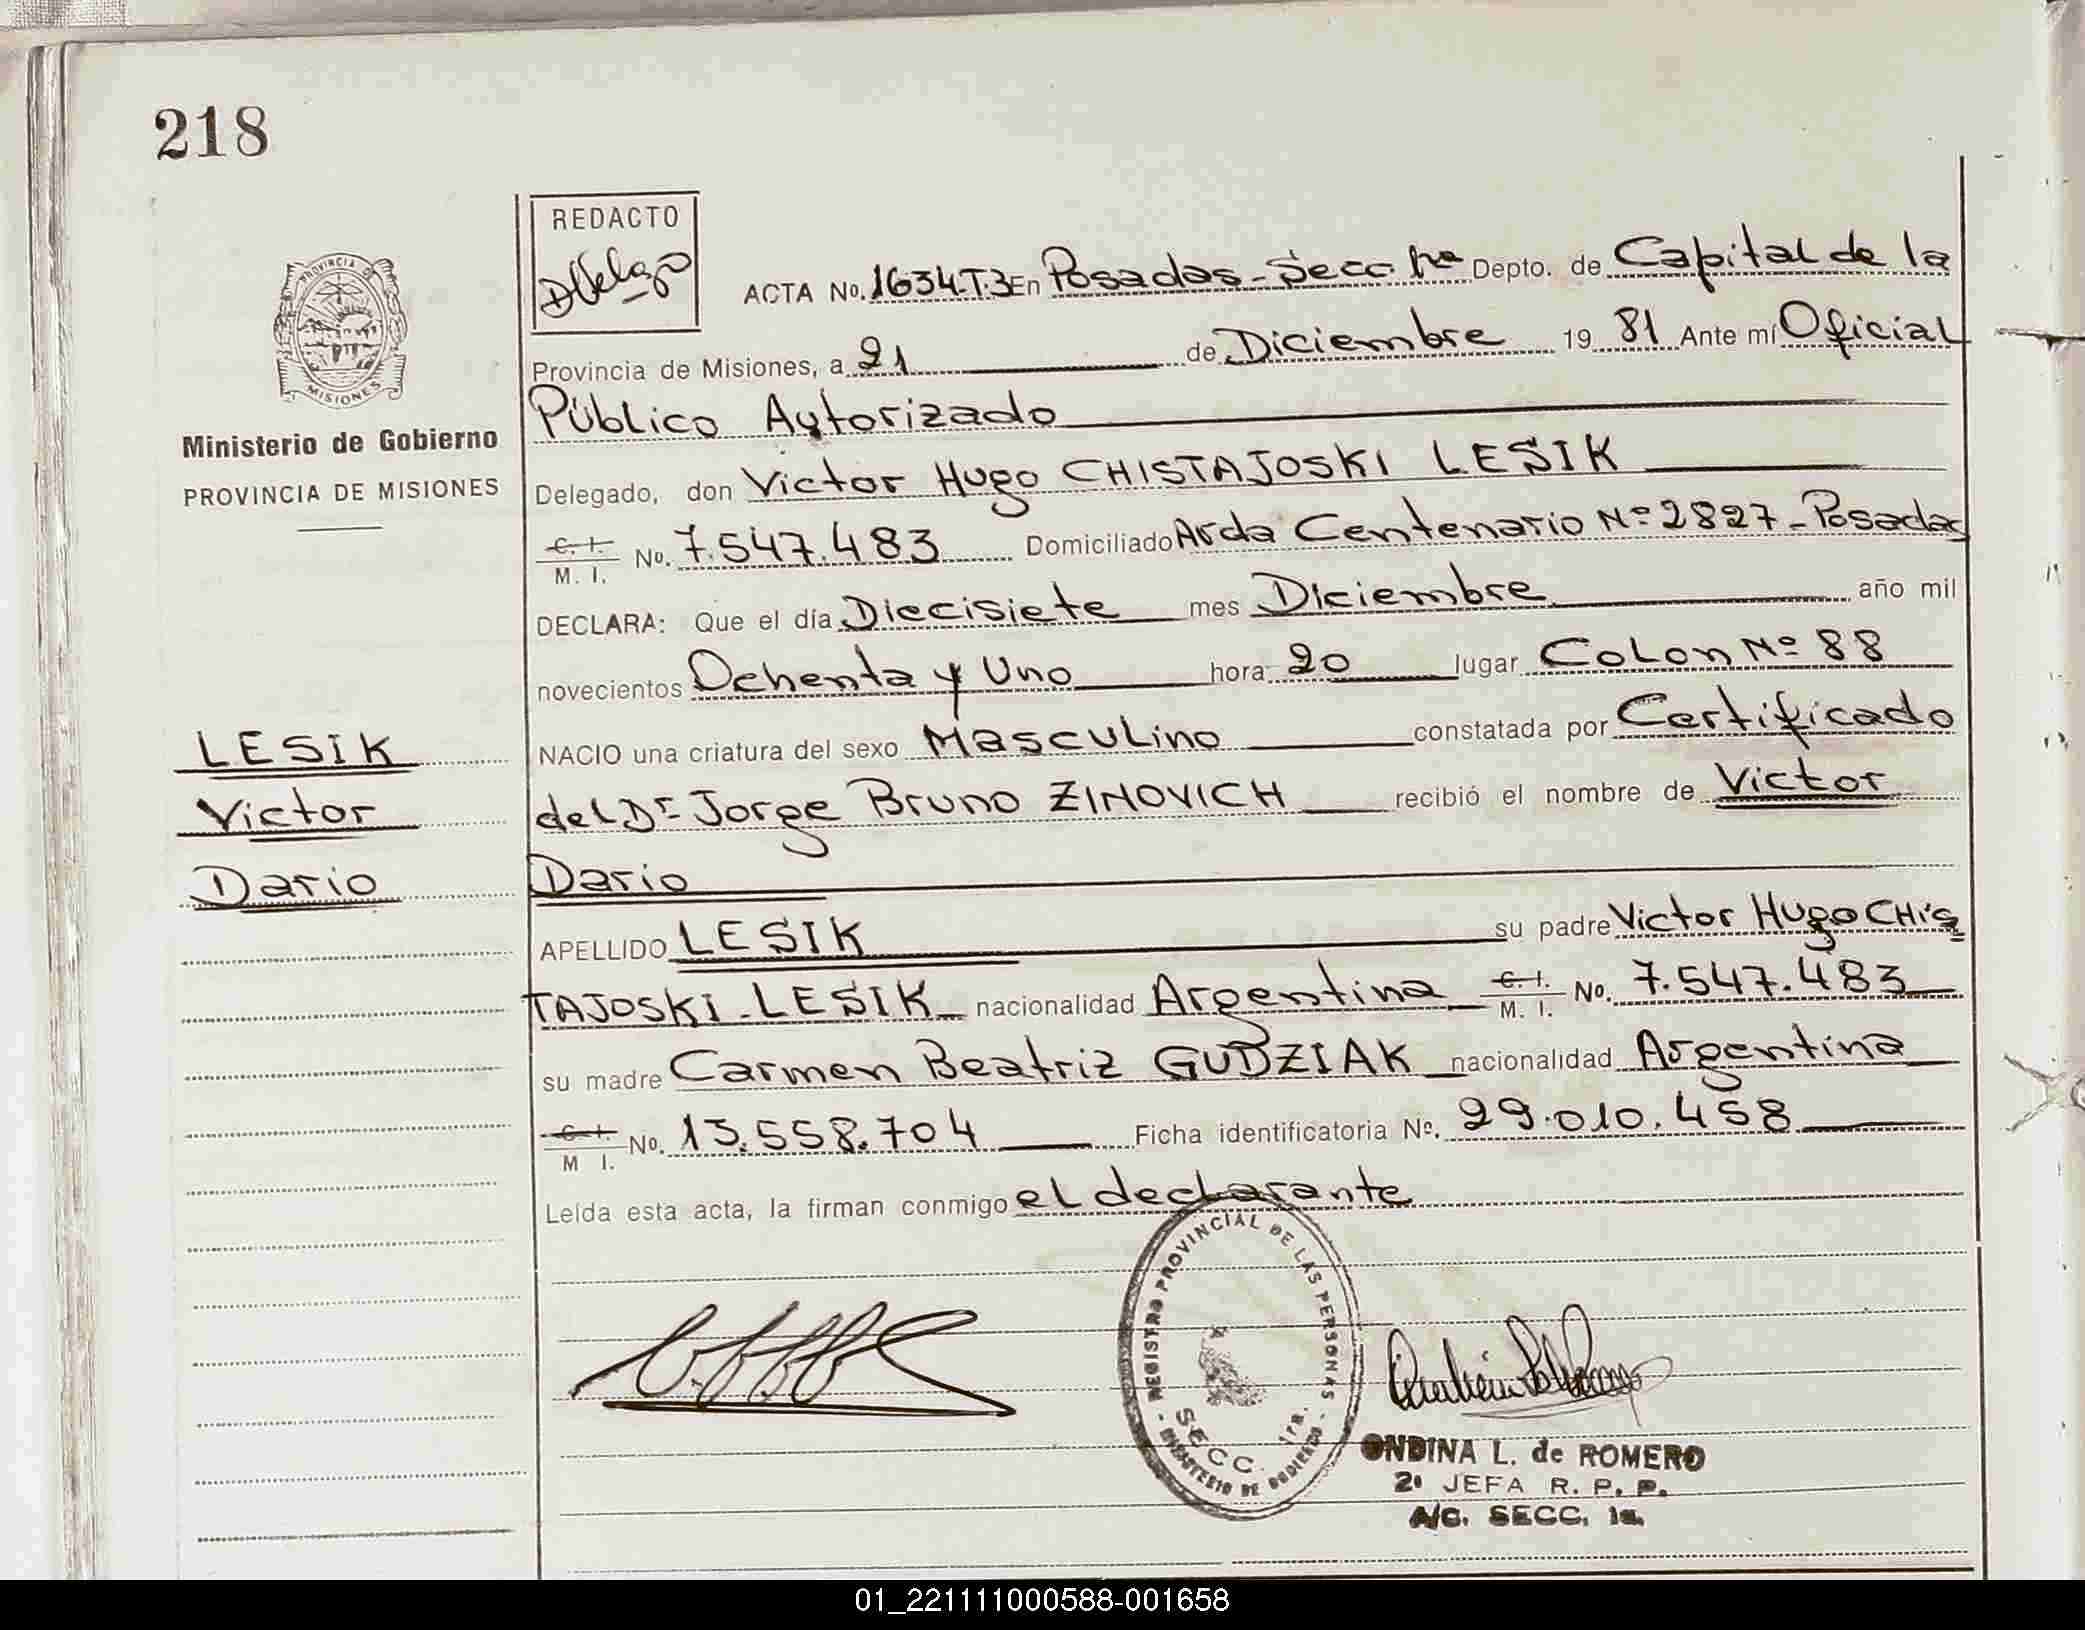 218
REDACTO
PROVINCIA DE
MISIONES
Ministerio de Gobierno
PROVINCIA DE MISIONES
ACTA No. 1634-T.3 En Posadas - Secc. 1ra Depto. de Capital de la
Provincia de Misiones, a 21 de Diciembre 19 81 Ante mí Oficial
Público Autorizado
Delegado, don Victor Hugo CHISTAJOSKI LESIK
C. I. M. I. No. 7.547.483 Domiciliado Avda Centenario Nº 2827 - Posadas
DECLARA: Que el día Diecisiete mes Diciembre año mil
novecientos Ochenta y Uno hora 20 lugar Colon Nº 88
LESIK
NACIO una criatura del sexo Masculino constatada por Certificado
Victor
del Dr Jorge Bruno ZINOVICH recibió el nombre de Victor
Dario
Dario
APELLIDO LESIK su padre Victor Hugo CHIS
TAJOSKI - LESIK nacionalidad Argentina C. I. M. I. No. 7.547.483
su madre Carmen Beatriz GUDZIAK nacionalidad Argentina
C. I. M I. No. 13.558.704 Ficha identificatoria Nº. 29.010.458
Leída esta acta, la firman conmigo el declarante
REGISTRO PROVINCIAL DE LAS PERSONAS
SECC. 1ra.
MINISTERIO DE GOBIERNO
ONDINA L. de ROMERO
2ª JEFA R. P. P.
A/C. SECC. 1a.
01_221111000588-001658